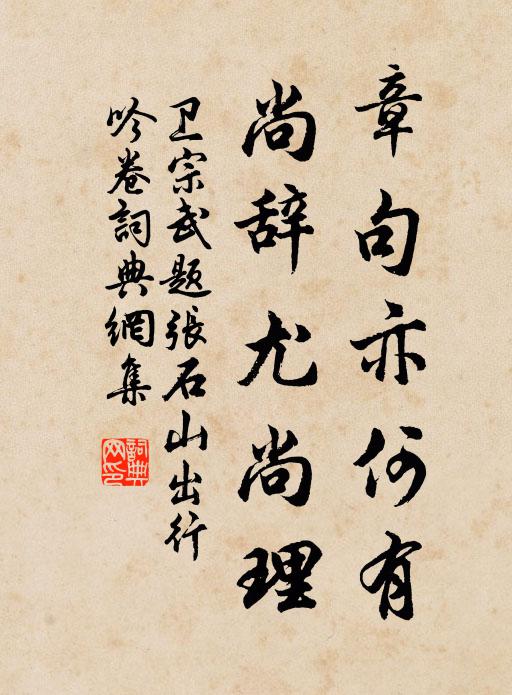 章句亦何有
尚辞尤尚理
卫宗武题张石山出行
吟卷詞典網集
詞典
网印